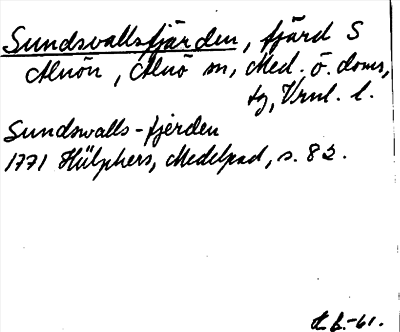 Sundsvallsfjärden, fjärd S
Alnön, Alnö sn, Med. ö. doms,
tg, Vrnl. l.
Sundswalls-fjerden
1771 Hülphers, Medelpad, s. 82.
H b.-61.